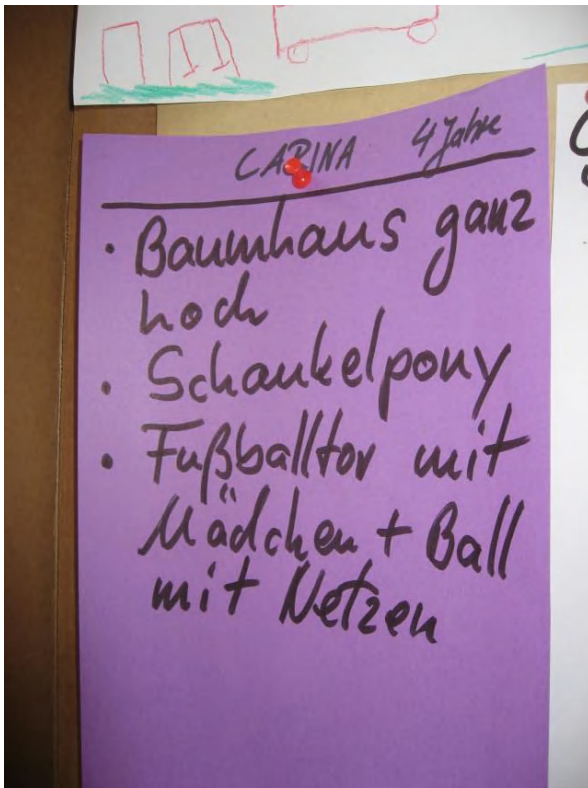 CARINA 4 Jahre
· Baumhaus ganz
hoch
· Schaukelpony
· Fußballtor mit
Mädchen + Ball
mit Netzen